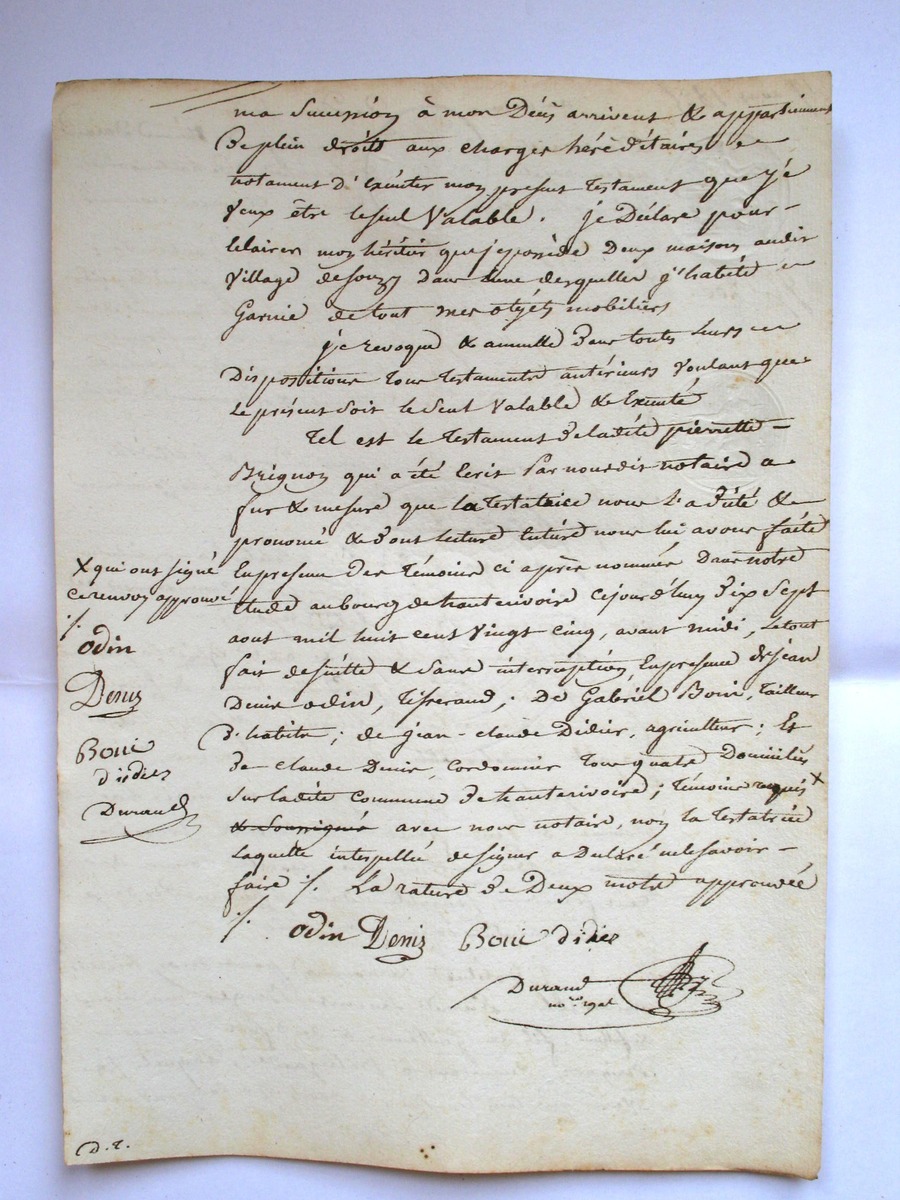 ma Succession à mon Décès arrivent & appartiennent
de plein droitt aux charges héréditaires &
notament d'Exécuter mon présent testament que je
veux être le seul Valable. je Déclare pour
Eclairer mon héritier que je possède Deux maisons audit
Village de Souzy dans l'une desquelles j'habite &
Garnie de tout mes objets mobiliers
je revoque & annulle dans toutes leurs
Dispositions tous testaments antérieurs Voulant que
le présent soit le seul Valable & Exécuté
Tel est le testament de ladite pierrette
Brignon qui a été Ecrit Par nous dit notaire a
fur & mesure que la testatrice nous l'a dité &
prononcé & dont lecture entière nous lui avons faite
En presence des témoins ci après nommés Dans notre
Etude au bourg de hauterivoire cejourd'huy dix Sept
aout mil huit cent Vingt Cinq, avant midi, le tout
fait de suitte & sans interruption, En presence de jean
Denis odin, tisserand; De Gabriel Boni, tailleur
d'habits; de jean-claude Didier, agriculteur; Et
de claude Denis, Cordonnier tous quatre Domiciliés
sur ladite commune de hauterivoire; témoins requis X
& Soussignés avec nous notaire, non la testatrice
laquelle interpellée de signer a Declaré ne le savoir
faire ·/. La rature de Deux mots approuvée
·/. odin Deniz Boni didier
Durand
no.re royal
X qui ont signé
ce renvoy approuvé
·/.
odin
Deniz
Boni
didier
Durand
D. t.